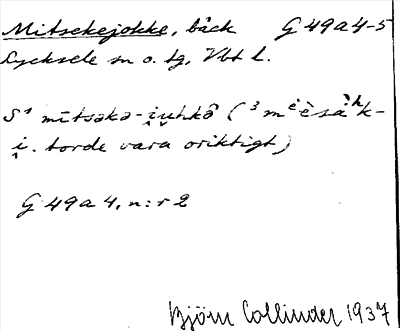 Mitsekejokke, bäck G 49a4-5
Lycksele sn o. tg, Vbt l.
S¹ mītsəkə-i̯uhkô (³mᵉèsàʰk-
i̯. torde vara oriktigt)
G 49a4, n:r 2
Björn Collinder 1937